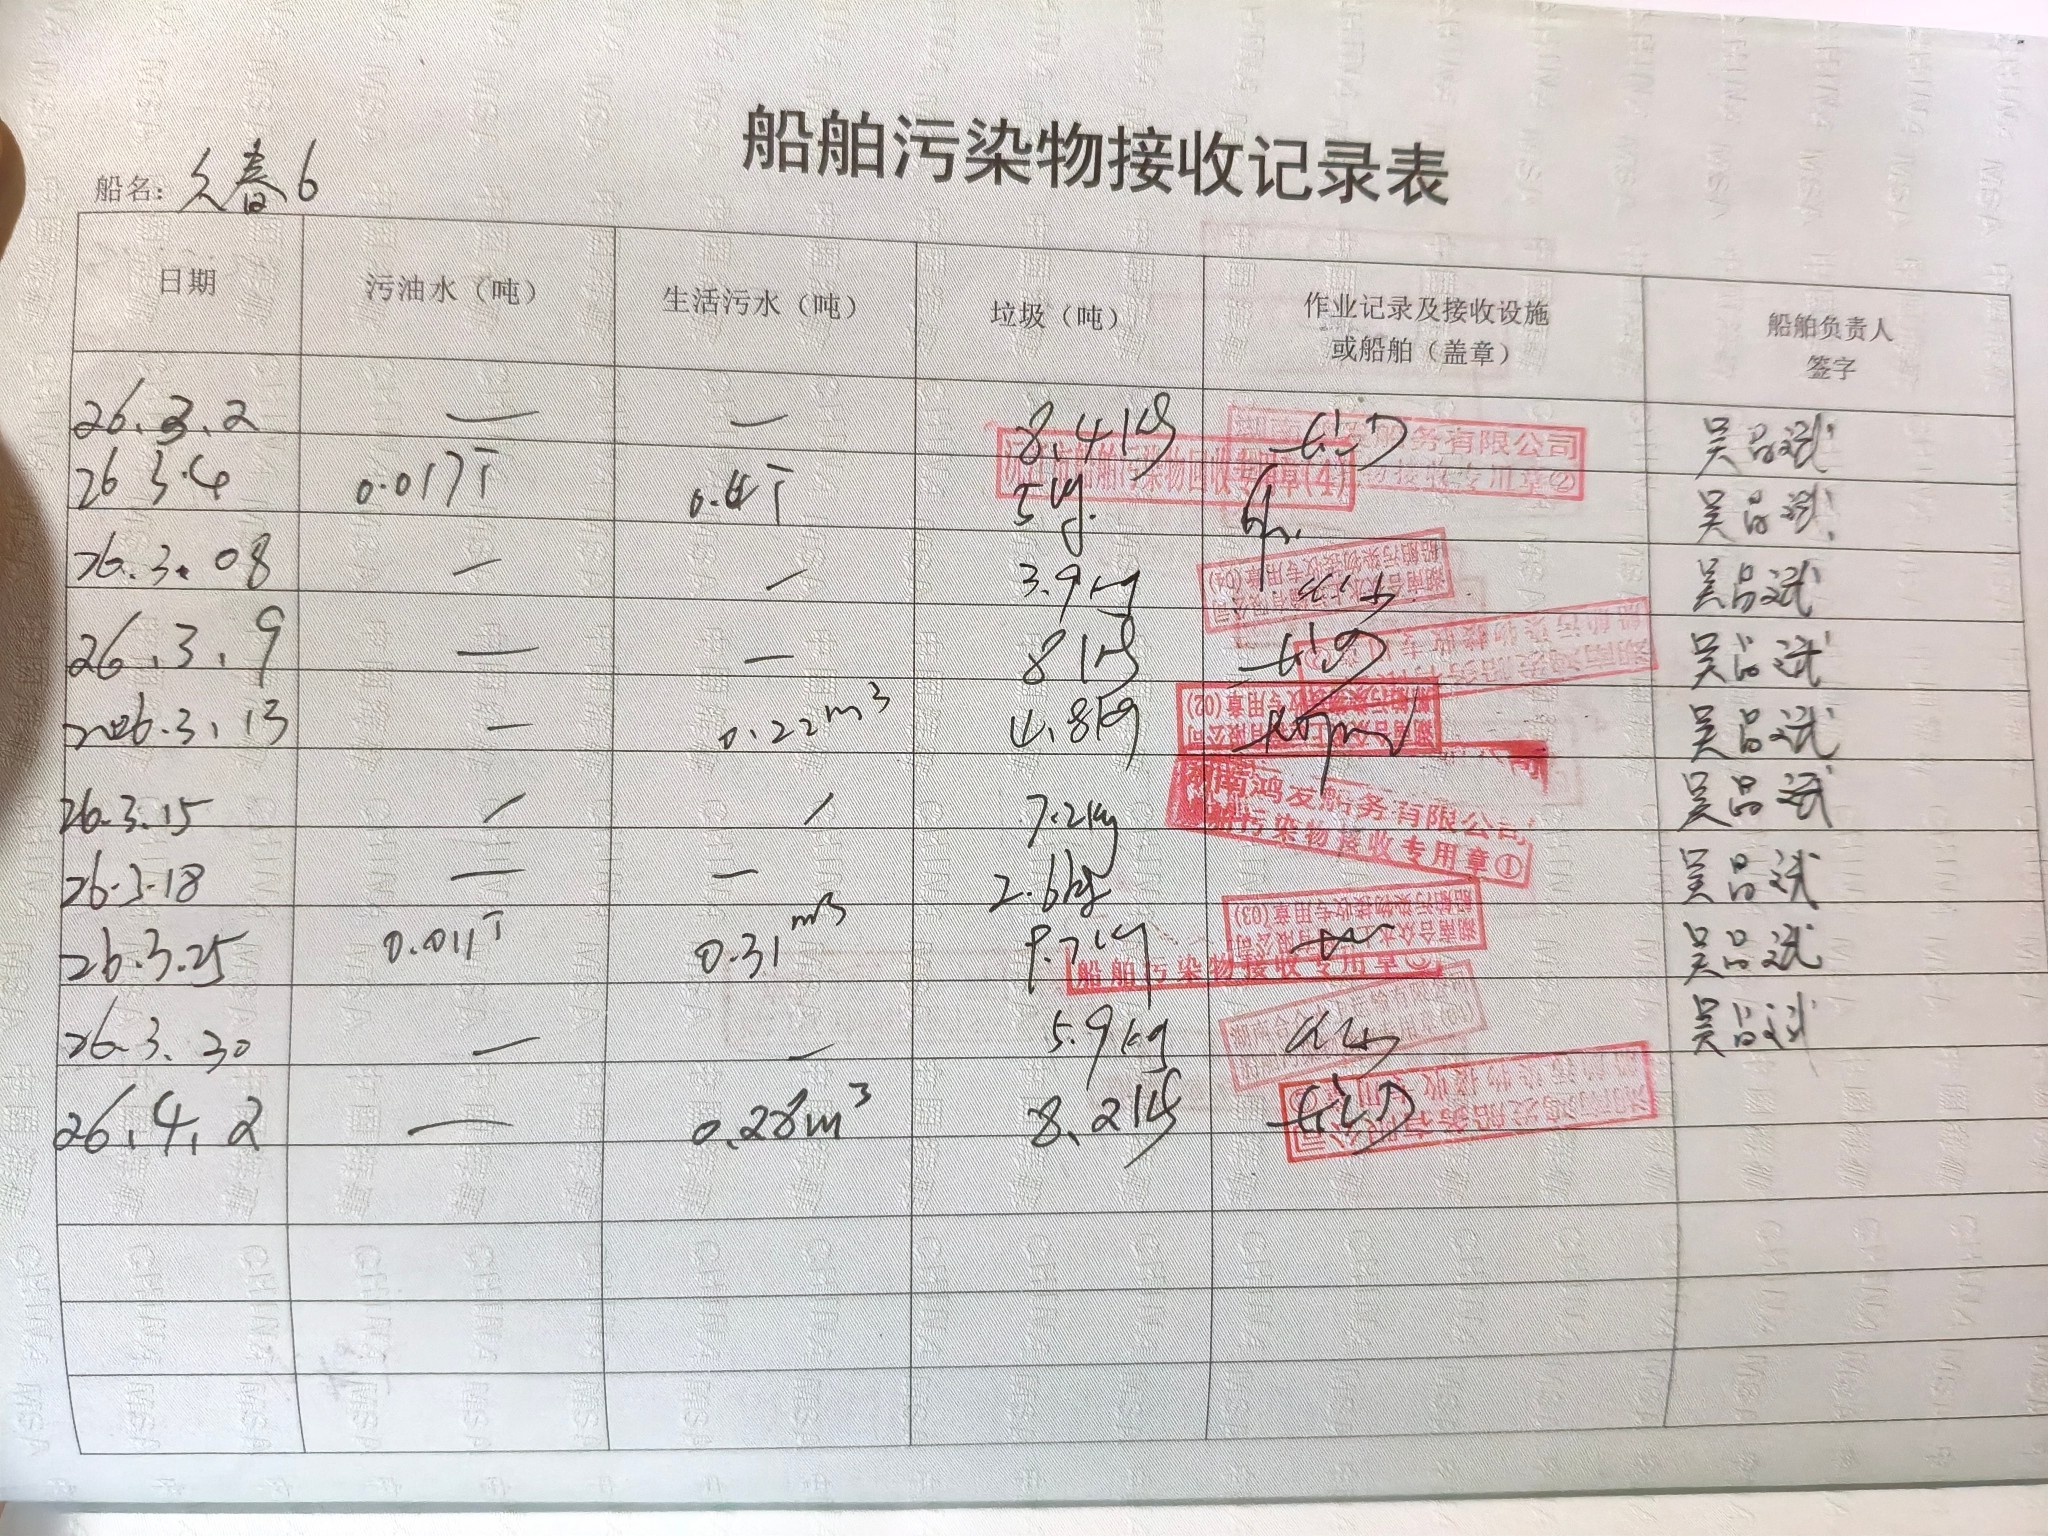 船舶污染物接收记录表
船名: 久春6
日期 污油水（吨） 生活污水（吨） 垃圾（吨） 作业记录及接收设施或船舶（盖章） 船舶负责人签字
26.3.2 — — 8.4kg 船务有限公司 吴品斌
26 3.4 0.017T 0.4T 5kg. 船舶污染物回收专用章(4) 物接收专用章② 吴品斌
26.3.08 — — 3.9kg 船舶污染物接收专用章(04) 吴品斌
26.3.9 — — 8kg 吴品斌
2026.3.13 — 0.22m³ 4.8kg 专用章(02) 吴品斌
26.3.15 / / 7.2kg 湖南鸿发船务有限公司 船舶污染物接收专用章① 吴品斌
26.3.18 — — 2.6kg 吴品斌
26.3.25 0.011T 0.31m³ 9.7kg 船舶污染物接收专用章(03) 船舶污染物接收专用章 吴品斌
26.3.30 — — 5.9kg 吴品斌
26.4.2 — 0.28m³ 8.2kg